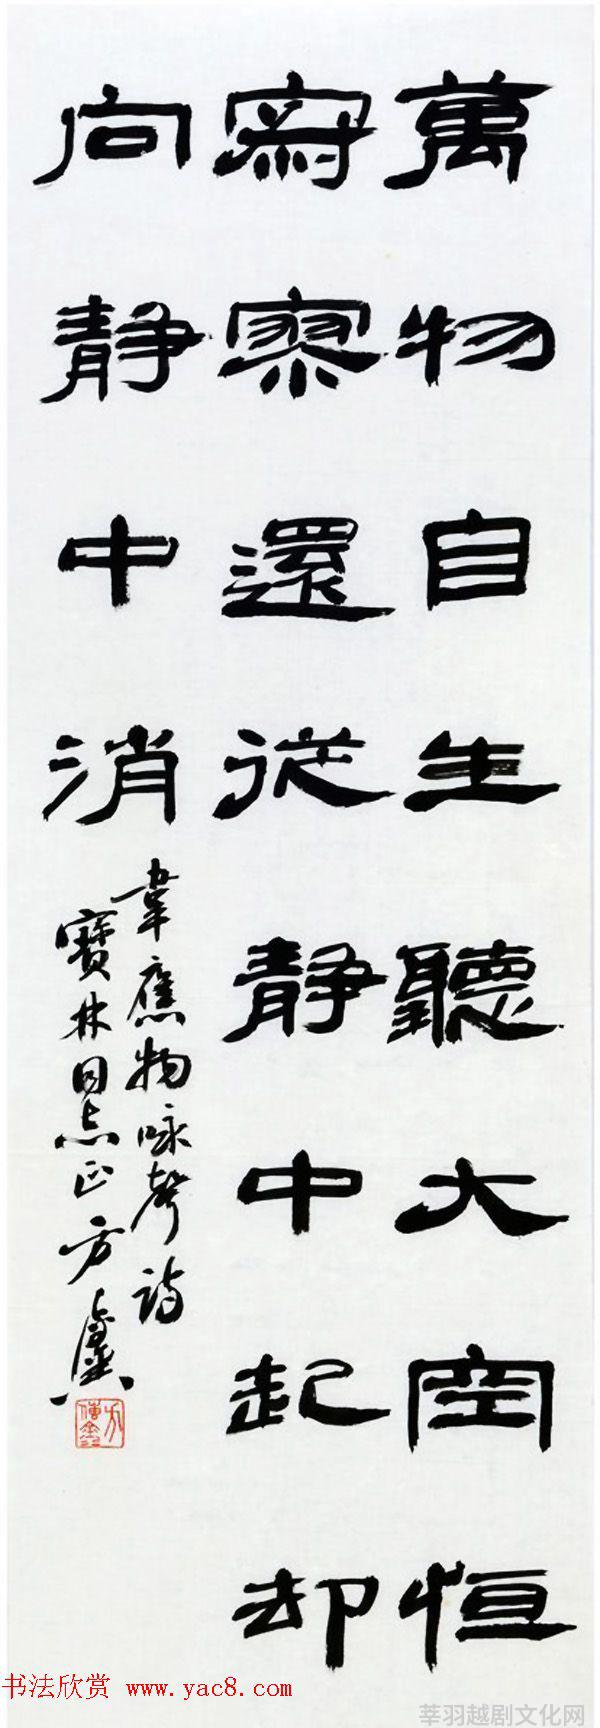 萬物自生聽大空恒
寂寥還從靜中起却
向靜中消
韋應物咏聲詩
寶林同志正方
書法欣赏 www.yac8.com
莘羽越剧文化网